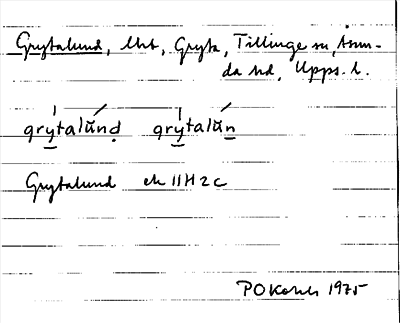 Grytalund, lht, Gryta, Tillinge sn, Åsun-
da hd, Upps. l.
grytalund grytalun
Grytalund ek 11H2c
1975